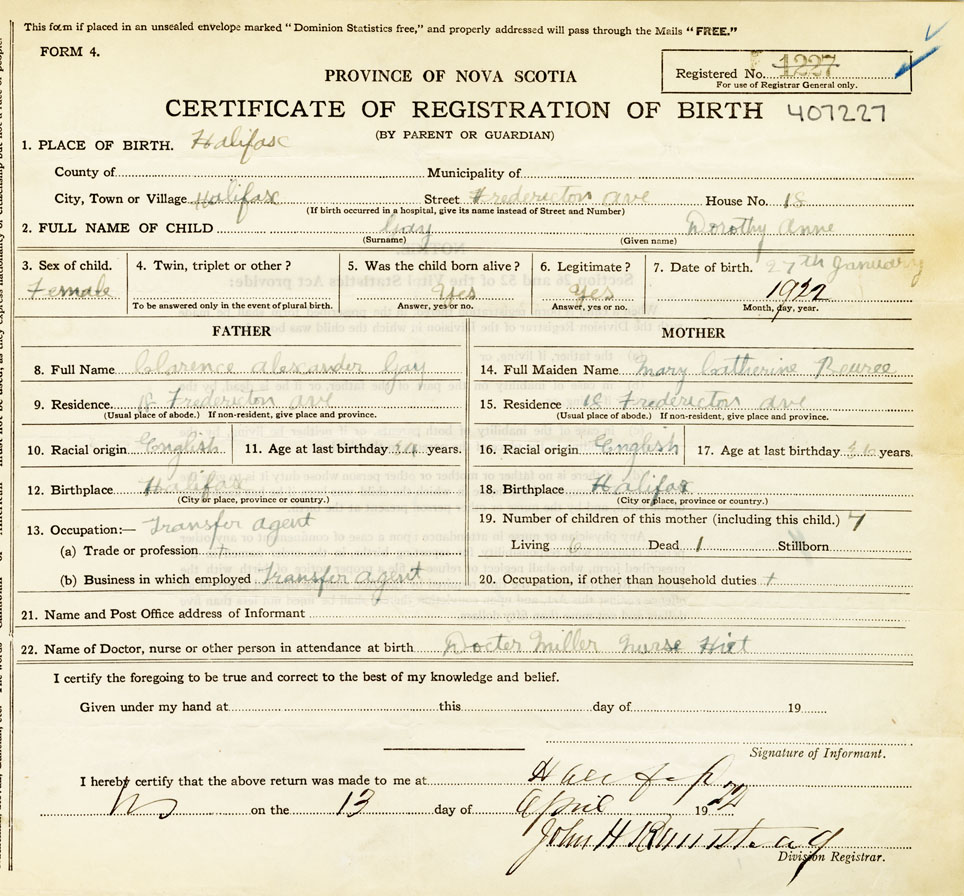 This form if placed in an unsealed envelope marked "Dominion Statistics free," and properly addressed will pass through the Mails "FREE."
FORM 4.
Registered No. 1227
For use of Registrar General only.
PROVINCE OF NOVA SCOTIA
CERTIFICATE OF REGISTRATION OF BIRTH 407227
(BY PARENT OR GUARDIAN)
1. PLACE OF BIRTH. Halifax
County of Municipality of
City, Town or Village Halifax Street Fredericton ave House No. 18
(If birth occurred in a hospital, give its name instead of Street and Number)
2. FULL NAME OF CHILD Gay Dorothy Anne
(Surname) (Given name)
3. Sex of child. 4. Twin, triplet or other? 5. Was the child born alive? 6. Legitimate? 7. Date of birth. 27th January
Female Yes Yes 1922
To be answered only in the event of plural birth. Answer, yes or no. Answer, yes or no. Month, day, year.
FATHER MOTHER
8. Full Name Clarence Alexander Gay 14. Full Maiden Name Mary Catherine
9. Residence 18 Fredericton ave 15. Residence 18 Fredericton ave
(Usual place of abode.) If non-resident, give place and province. (Usual place of abode.) If non-resident, give place and province.
10. Racial origin English 11. Age at last birthday years. 16. Racial origin English 17. Age at last birthday years.
12. Birthplace Halifax 18. Birthplace Halifax
(City or place, province or country.) (City or place, province or country.)
13. Occupation:— Transfer agent 19. Number of children of this mother (including this child.) 7
(a) Trade or profession Living 6 Dead 1 Stillborn
(b) Business in which employed Transfer agent 20. Occupation, if other than household duties
21. Name and Post Office address of Informant
22. Name of Doctor, nurse or other person in attendance at birth Docter Miller Nurse
I certify the foregoing to be true and correct to the best of my knowledge and belief.
Given under my hand at this day of 19
Signature of Informant.
I hereby certify that the above return was made to me at Halifax
NS on the 13 day of April 1922
John H
Division Registrar.